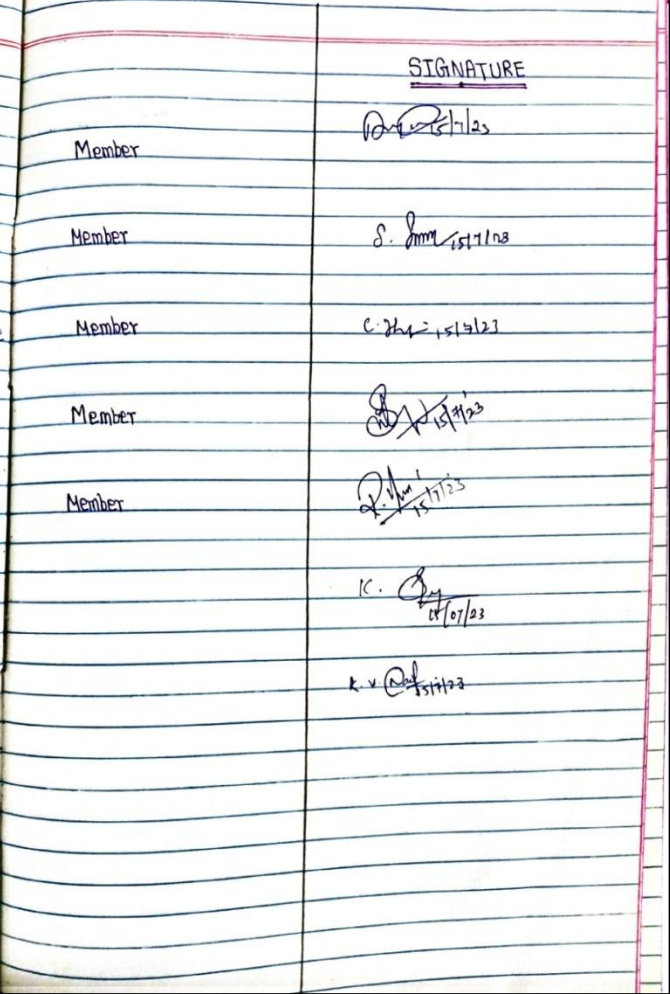 SIGNATURE
15/7/23
Member
Member S. 15/7/23
Member C. 15/7/23
Member 15/7/23
Member R. 15/7/23
K.
15/07/23
K. V. 15/7/23